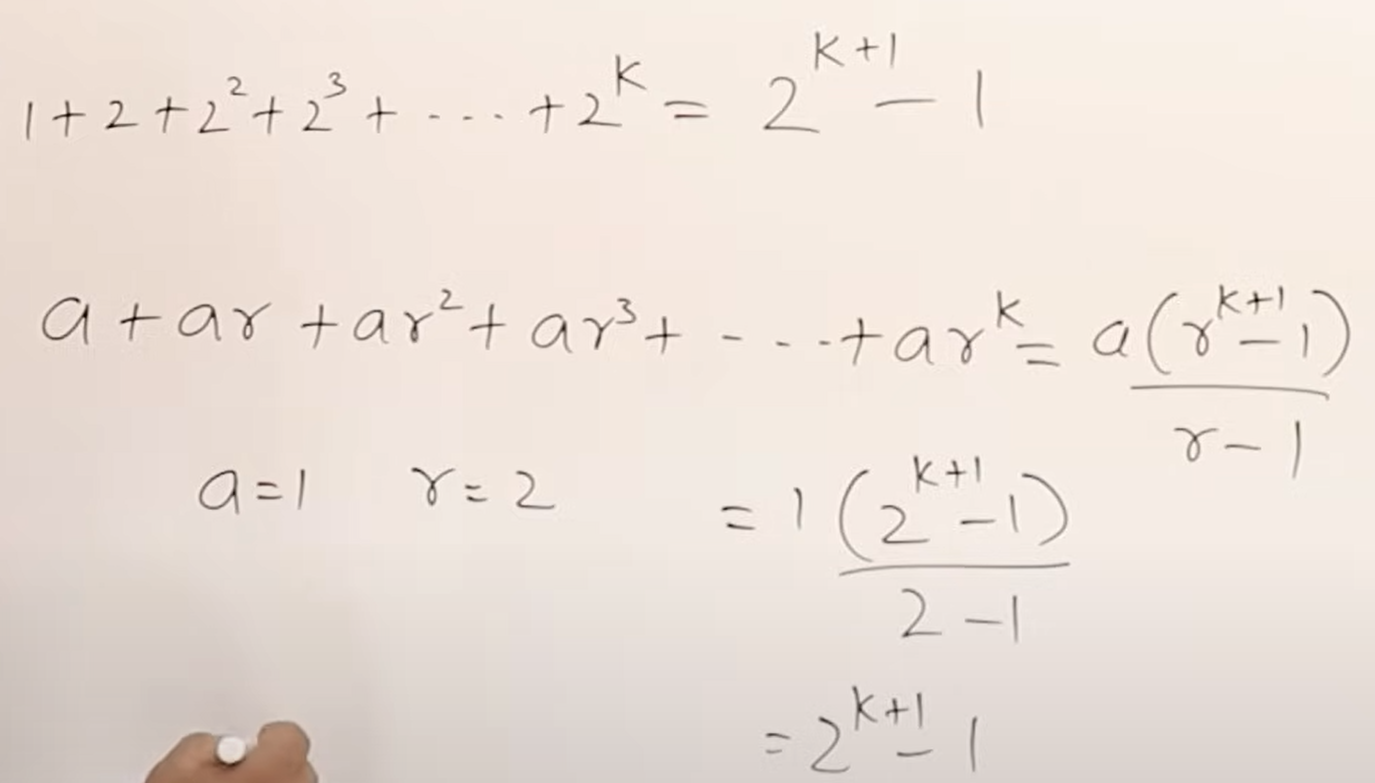 1 + 2 + 2² + 2³ + - - - + 2^k = 2^(k+1) - 1
a + ar + ar² + ar³ + - - - + ar^k = a(r^(k+1) - 1) / (r - 1)
a = 1 r = 2 = 1(2^(k+1) - 1) / (2 - 1)
= 2^(k+1) - 1